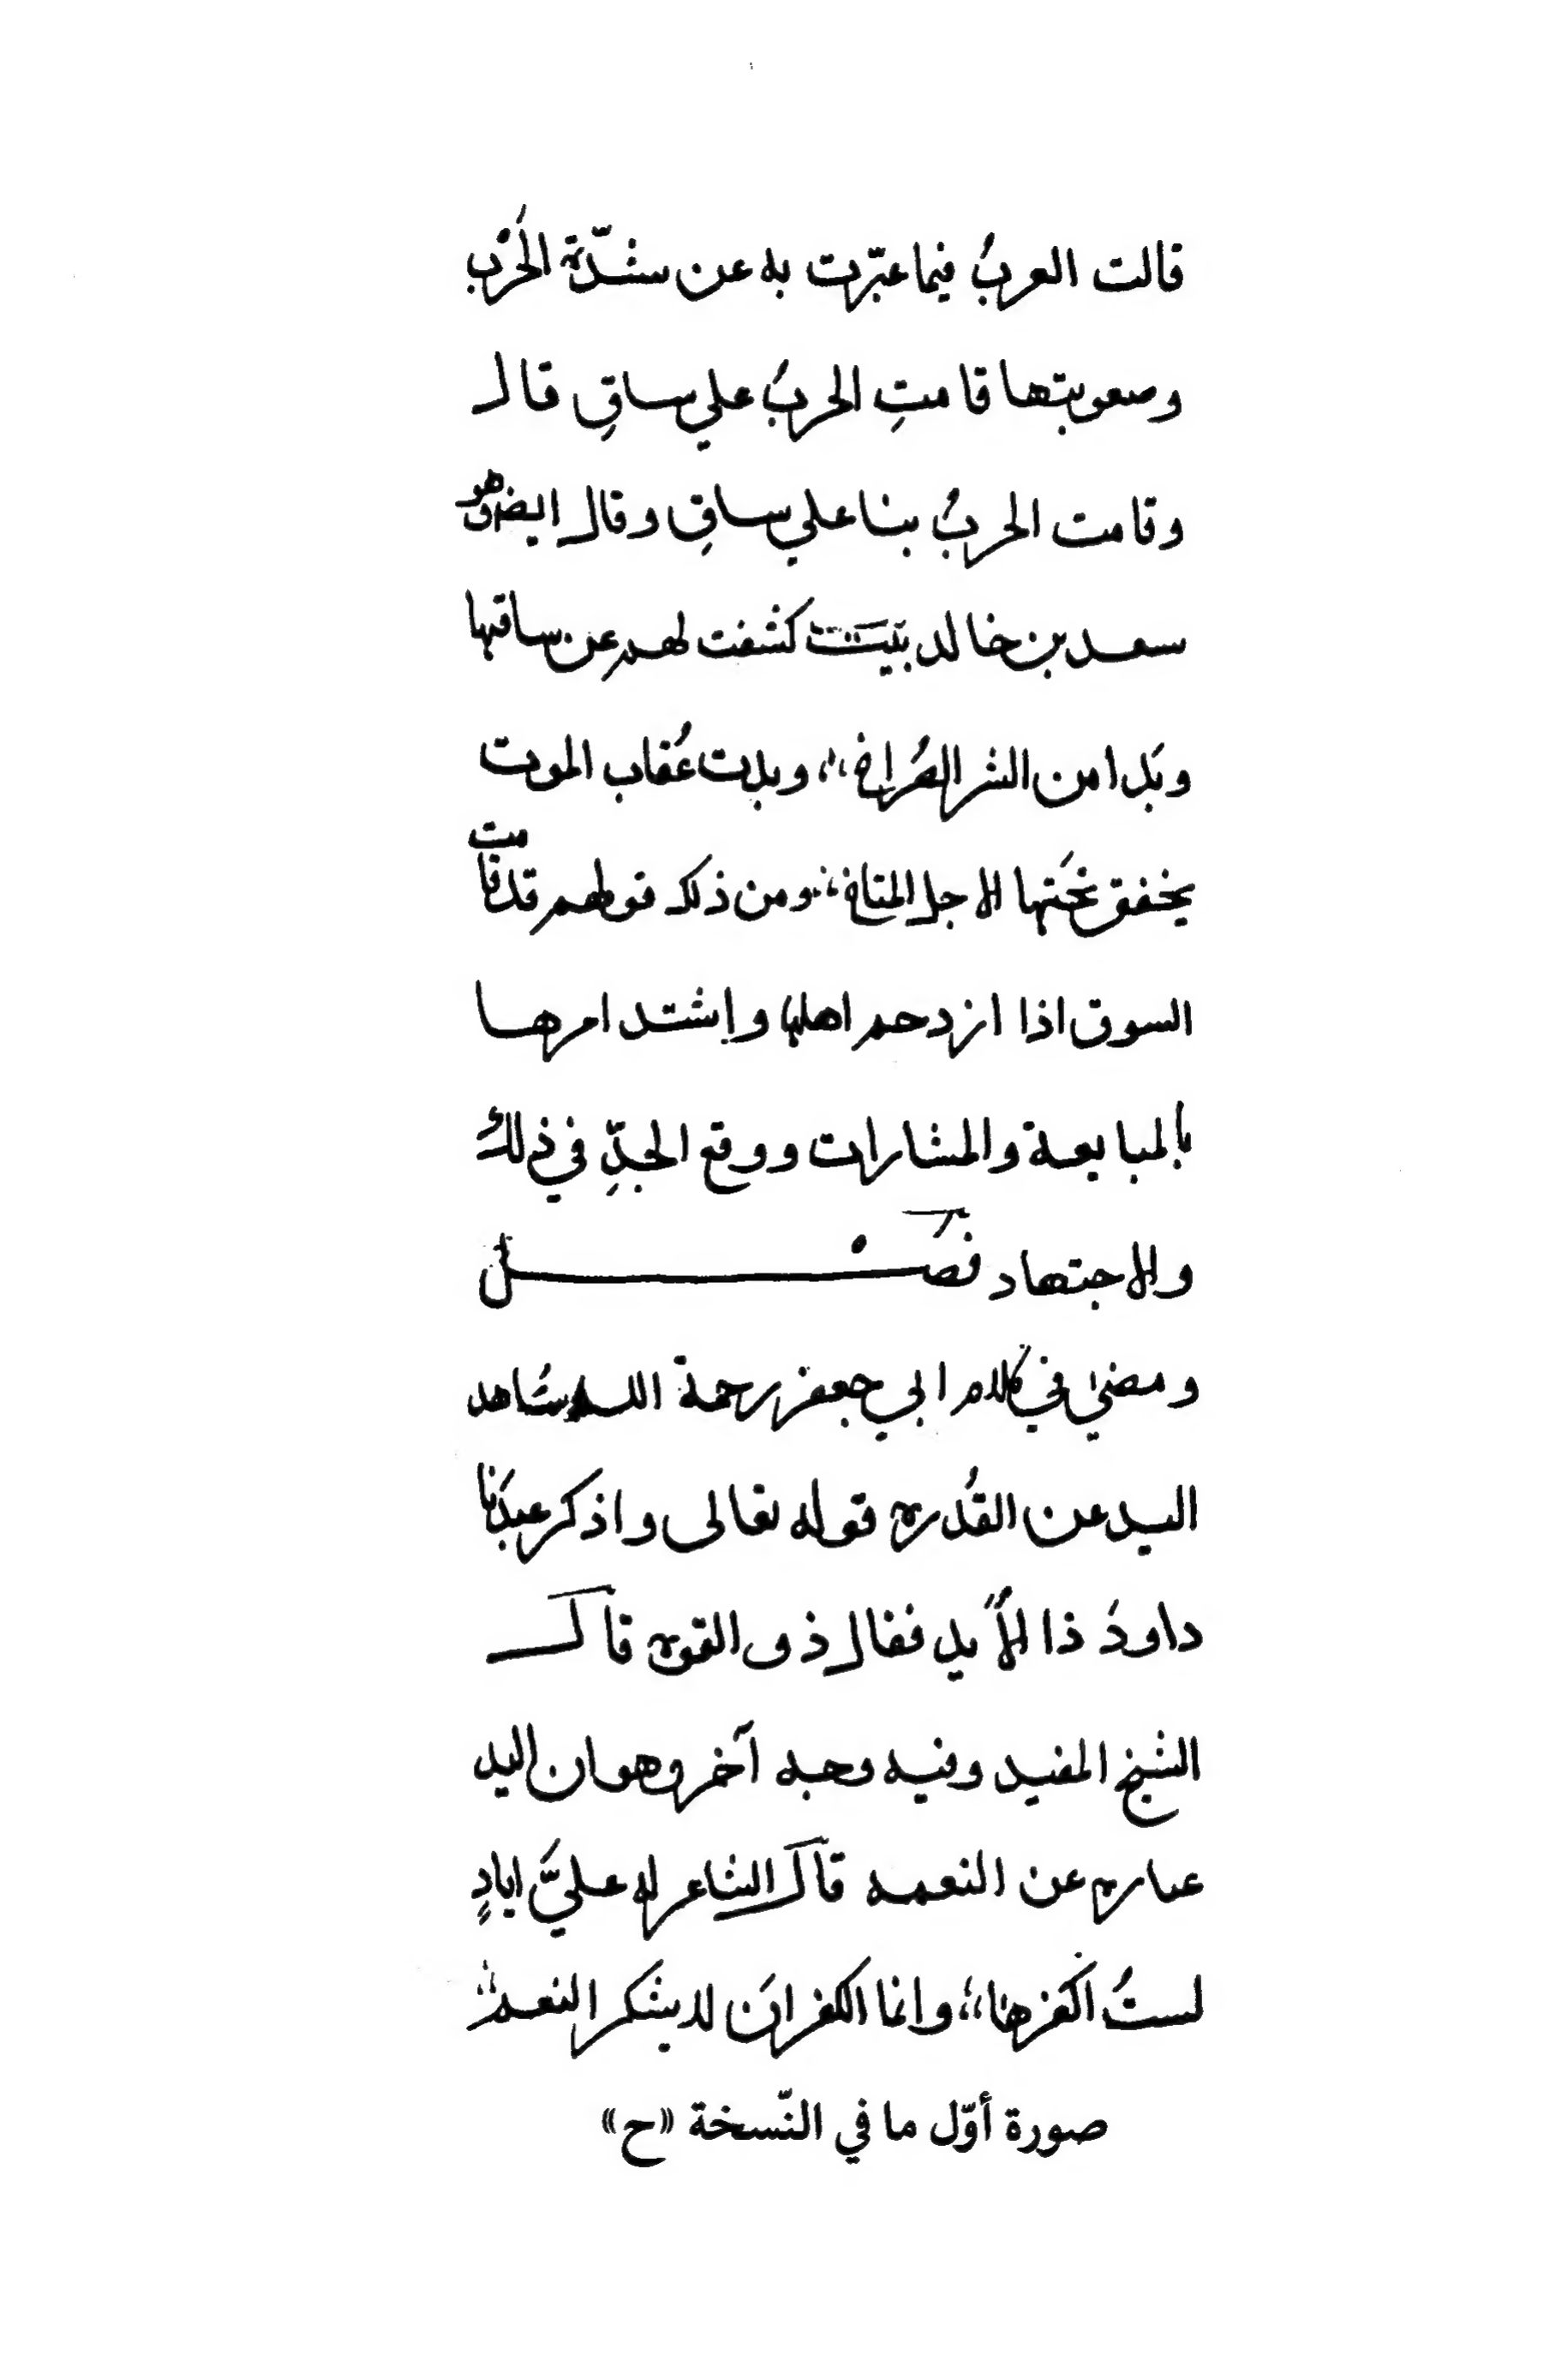 قالت العربُ فيما عبّرت به عن شدّة الحَرْب
وصعوبتها قامتِ الحربُ علي ساقٍ قال
وقامت الحربُ بنا علي ساقٍ وقال ايضا وهو
سعد بن خالد كشفت لهم عن ساقها
وبَدا من الشر الصُراح ،، وبدت عُقاب الموت
يخفق تحَتها الاجل المتاح ،، ومن ذلك قولهم قد قامت
السوق اذا ازدحم اهلها واشتد امرها
بالمبايعة والمشارات ووقع الجدِّ في ذلك
والاجتهاد فصَْل
ومضي في كلام ابي جعفر رحمة الله شاهد
اليد عن القُدرة قوله تعالى واذكر عبدَنا
داودَ ذا الأَيد فقال ذو القوة قال
الشيخ المفيد وفيه وجه آخر وهو ان اليد
عبارة عن النعمه قال الشاعر له عليَّ ايادٍ
لستُ اكفرها ،، وانما الكفرانَ لا يشكر النعم
صورة أوّل ما في النّسخة «ح»